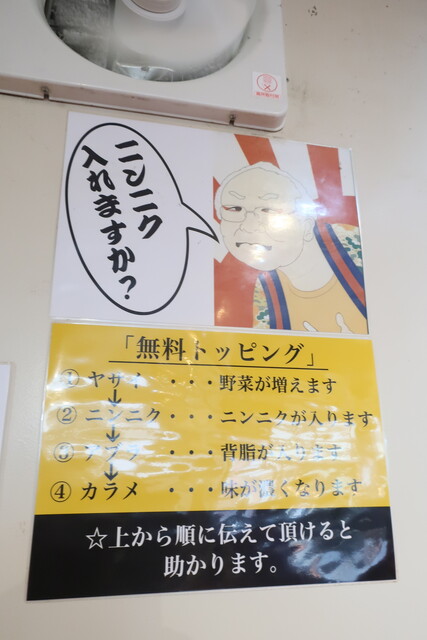 ニンニク
入れますか?
「無料トッピング」
① ヤサイ ・・・野菜が増えます
② ニンニク ・・・ニンニクが入ります
③ アブラ ・・・背脂が入ります
④ カラメ ・・・味が濃くなります
☆上から順に伝えて頂けると
助かります。